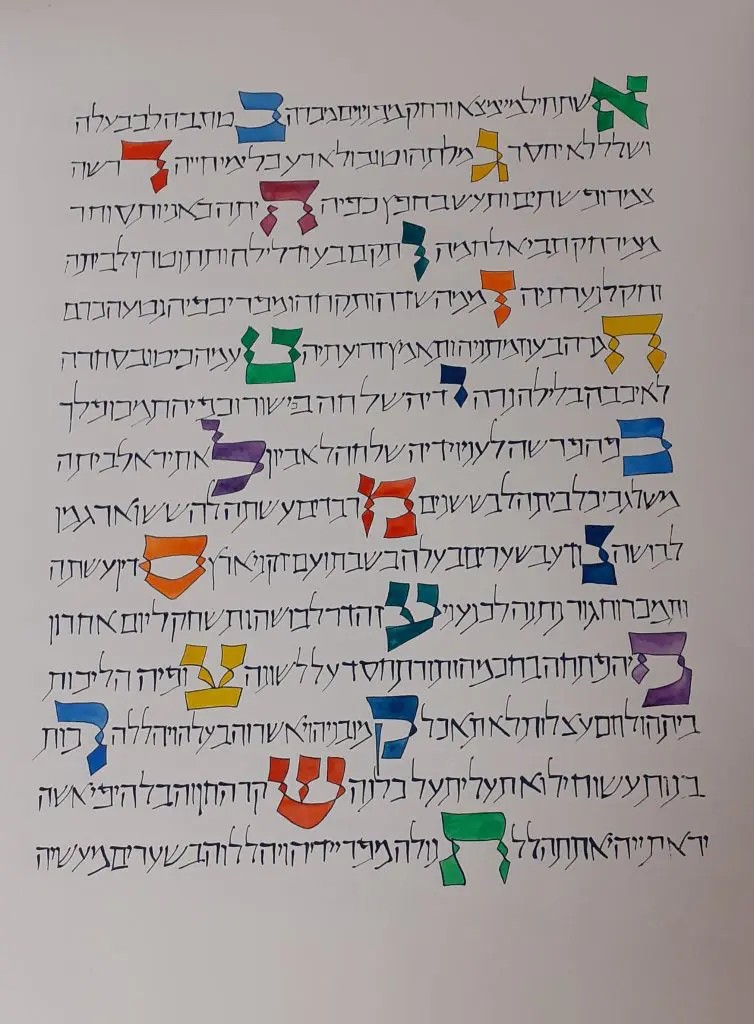 אשת חיל מי ימצא ורחק מפנינים מכרה בטח בה לב בעלה
ושלל לא יחסר גמלתהו טוב ולא רע כל ימי חייה דרשה
צמר ופשתים ותעש בחפץ כפיה היתה כאניות סוחר
ממרחק תביא לחמה ותקם בעוד לילה ותתן טרף לביתה
וחק לנערתיה זממה שדה ותקחהו מפרי כפיה נטעה כרם
חגרה בעוז מתניה ותאמץ זרועתיה טעמה כי טוב סחרה
לא יכבה בלילה נרה ידיה שלחה בכישור וכפיה תמכו פלך
כפה פרשה לעני וידיה שלחה לאביון לא תירא לביתה
משלג כי כל ביתה לבש שנים מרבדים עשתה לה שש וארגמן
לבושה נודע בשערים בעלה בשבתו עם זקני ארץ סדין עשתה
ותמכר וחגור נתנה לכנעני עז והדר לבושה ותשחק ליום אחרון
פיה פתחה בחכמה ותורת חסד על לשונה צופיה הליכות
ביתה ולחם עצלות לא תאכל קמו בניה ויאשרוה בעלה ויהללה רבות
בנות עשו חיל ואת עלית על כלנה שקר החן והבל היפי אשה
יראת יי היא תתהלל תנו לה מפרי ידיה ויהללוה בשערים מעשיה